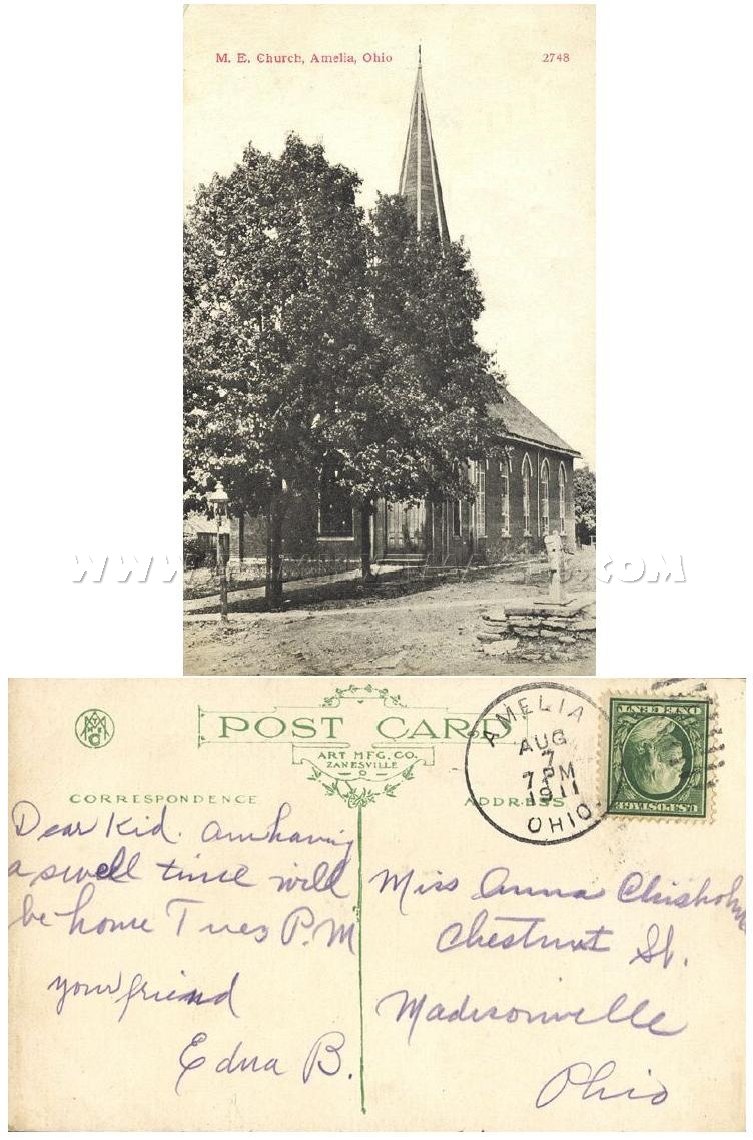 M. E. Church, Amelia, Ohio
2748
POST CARD
ART MFG. CO.
ZANESVILLE
CORRESPONDENCE
ADDRESS
AMELIA
AUG
7
7 PM
1911
OHIO.
ONE CENT
U.S. POSTAGE
Dear Kid. am having
a swell time will
be home Tues P.M
your friend
Edna B.
Miss Anna Chisholm
Chestnut St.
Madisonville
Ohio